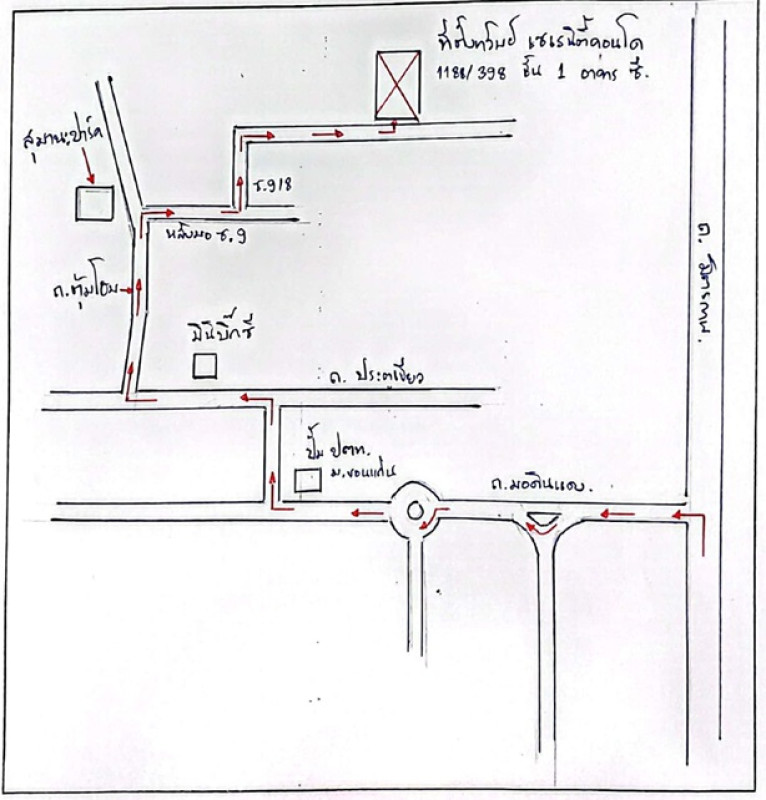 ที่ตั้งทรัพย์ เซเรนิตี้คอนโด
1188/398 ชั้น 1 อาคาร ซี.
สุมานะปาร์ค
ซ.9/8
หลังมอ ซ.9
ถ.ตุ้มโฮม
ถ. มิตรภาพ.
มินิบิ๊กซี
ถ. ประตูเขียว
ปั๊ม ปตท.
ม.ขอนแก่น
ถ.มอดินแดง.